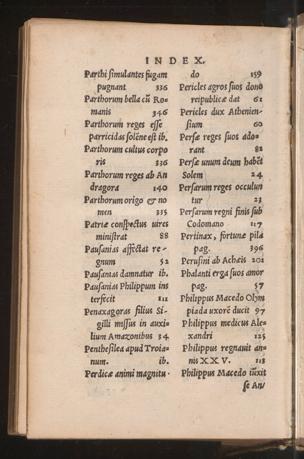 INDEX.
Parthi simulantes fugam
pugnant 336
Parthorum bella cū Ro=
manis 356
Parthorum reges esse
parricidas solēne est ib.
Parthorum cultus corpo
ris 336
Parthorum reges ab An
dragora 140
Parthorum origo & no
men 335
Patriæ conspectus vires
ministrat 88
Pausanias affectat re=
gnum 52
Pausanias damnatur ib.
Pausanias Philippum ins
terfecit 112
Penaxagoras filius Si=
gilli missus in auxi=
lium Amazonibus 34
Penthesilea apud Troia=
num. ib.
Perdicæ animi magnitu=
do 159
Pericles agros suos dono
reipublicæ dat 61
Pericles dux Athenien=
sium 60
Persæ reges suos ado=
rant 82
Persæ unum deum habēt
Solem 24
Persarum reges occulun
tur 23
Persarum regni finis sub
Codomano 117
Pertinax, fortunæ pila
pag. 396
Perusini ab Achæis 201
Phalanti erga suos amor
pag. 57
Philippus Macedo Olym
piada uxorē ducit 97
Philippus medicus Ale=
xandri 125
Philippus regnauit an=
nis XXV. 113
Philippus Macedo iūxit
se An/